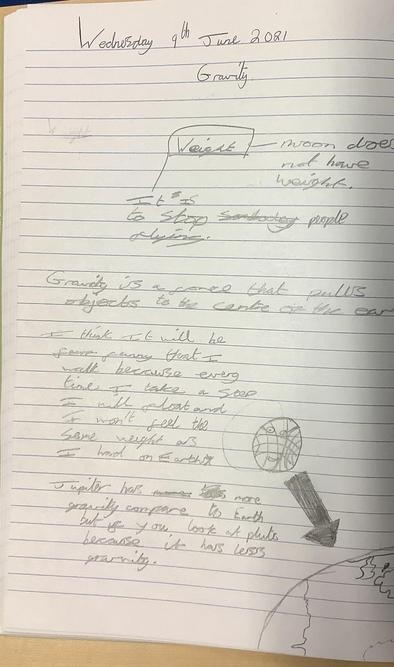 Wednesday 9th June 2021
Gravity
Weight
moon does
not have
weight.
It's is
to stop people
Gravity is a force that pulls
objects to the centre of the ear
I think It will be
funny that I
walk because every
time I take a step
I will float and
I won't feel the
same weight as
I had on Earth
Jupiter has more
gravity compare to Earth
but if you look at pluto
because it has less
gravity.